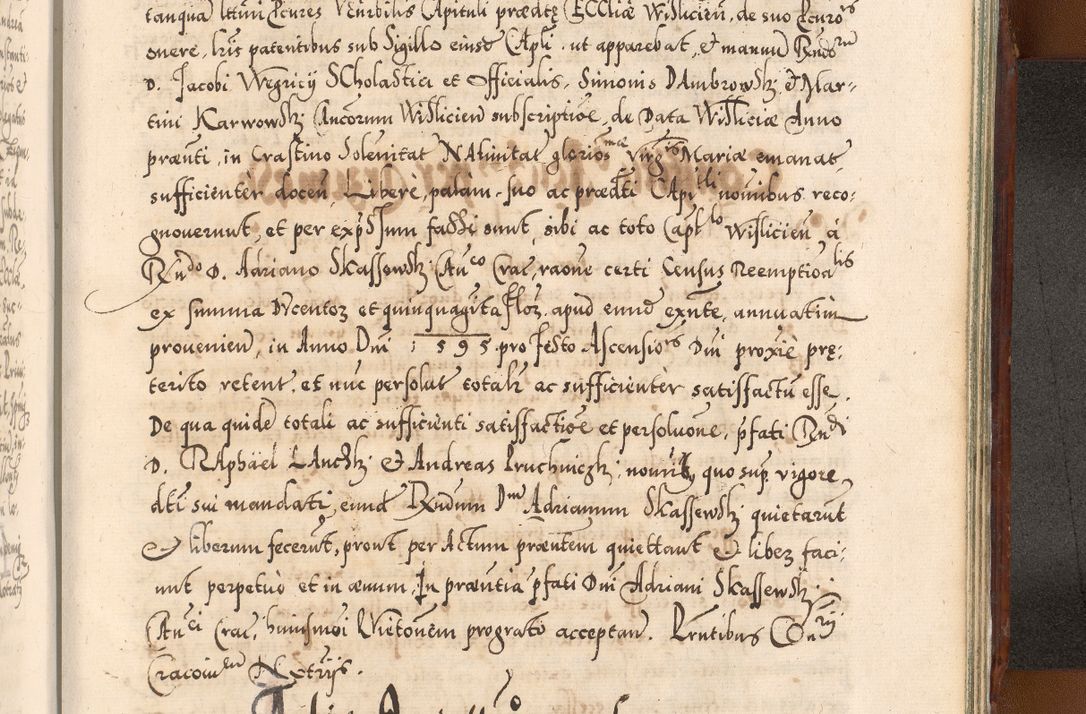 tanqua lttimi Pcures Venrbilis Capituli prædtę ECCliæ Wislicien, de suo Pcurois
onere, lris patentibus sub Sigillo eiusd Capli, ut apparebat, & manuu Rndorum
D. Jacobi Wegricij SCholastici et Officialis, Simonis DAmbrowski & Mar-
tini Karwowski Cancorum Wislicien subscriptioe, de Data Wisliciæ Anno
præsnti, in Crastino Solenitat NAtiuitat gloriosmæ Virgis Mariæ emanat
sufficienter docen, Libere, palam, suo ac prædti CApltuli nominibus reco-
gnouerunt, et per exp̃ssum fassi sunt, sibi ac toto Caplo Wislicien à
Rndo D. Adriano Skassewski Canco Crac, raone certi Census Reemptioalis
ex summa Ducentoz et quinquagita floz. apud eund exnte, annuatim
prouenien, in Anno Dni 1595. pro festo Ascensiois Dni proxie prę-
terito retent, et nuc persolut totalr ac sufficienter satisfactu esse.
De qua quide totali ac sufficienti satisfactioe et persoluone, pfati Rndi
D. RAphael LAncski & Andreas Pruchniczki, nomibus, quo sup, vigore
dti sui mandati, eund Rndum Dnum Adrianum Skassewski quietarut
& liberum fecerut, prout per Actum præntem quiettant & liber faci-
unt perpetuò et in æuum, In præntia pfati Dni Adriani Skassewski
Canci Crac, huiusmoi Qvietonem prograto acceptan. Prntibus Consrij
Cracouien Notrijs.